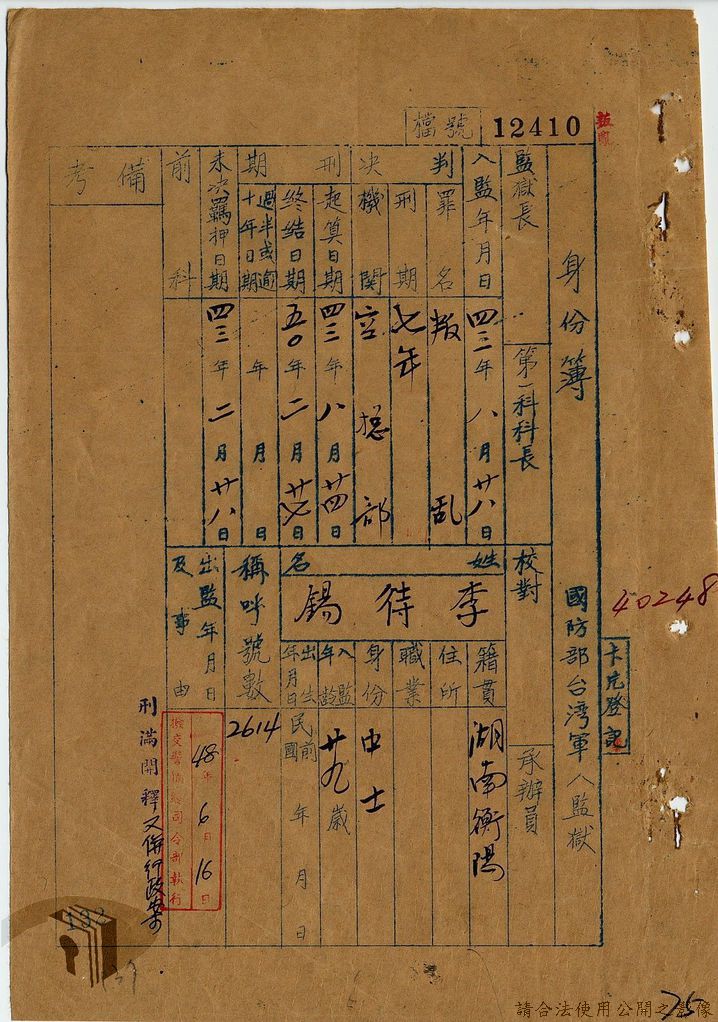 檔號 12410
身份簿 國防部台灣軍人監獄
40248
卡片登記
監獄長 第一科科長 校對 承辦員
入監年月日 四三年八月廿八日
判決
罪名 叛乱
刑期 七年
機關 空總部
刑期
起算日期 四三年八月廿四日
終結日期 五〇年二月廿七日
過半或逾十年日期 年 月 日
未決羈押日期 四三年二月廿八日
前科
備考
姓名 李待錫
籍貫 湖南衡陽
住所
職業
身份 中士
入監年齡 廿九歲
出生年月日 民國前 年 月 日
稱呼號數 2614
出監年月日及事由
48年6月16日
撥交警備總司令部執行
刑滿開釋又併行政案
132
75
請合法使用公開之影像